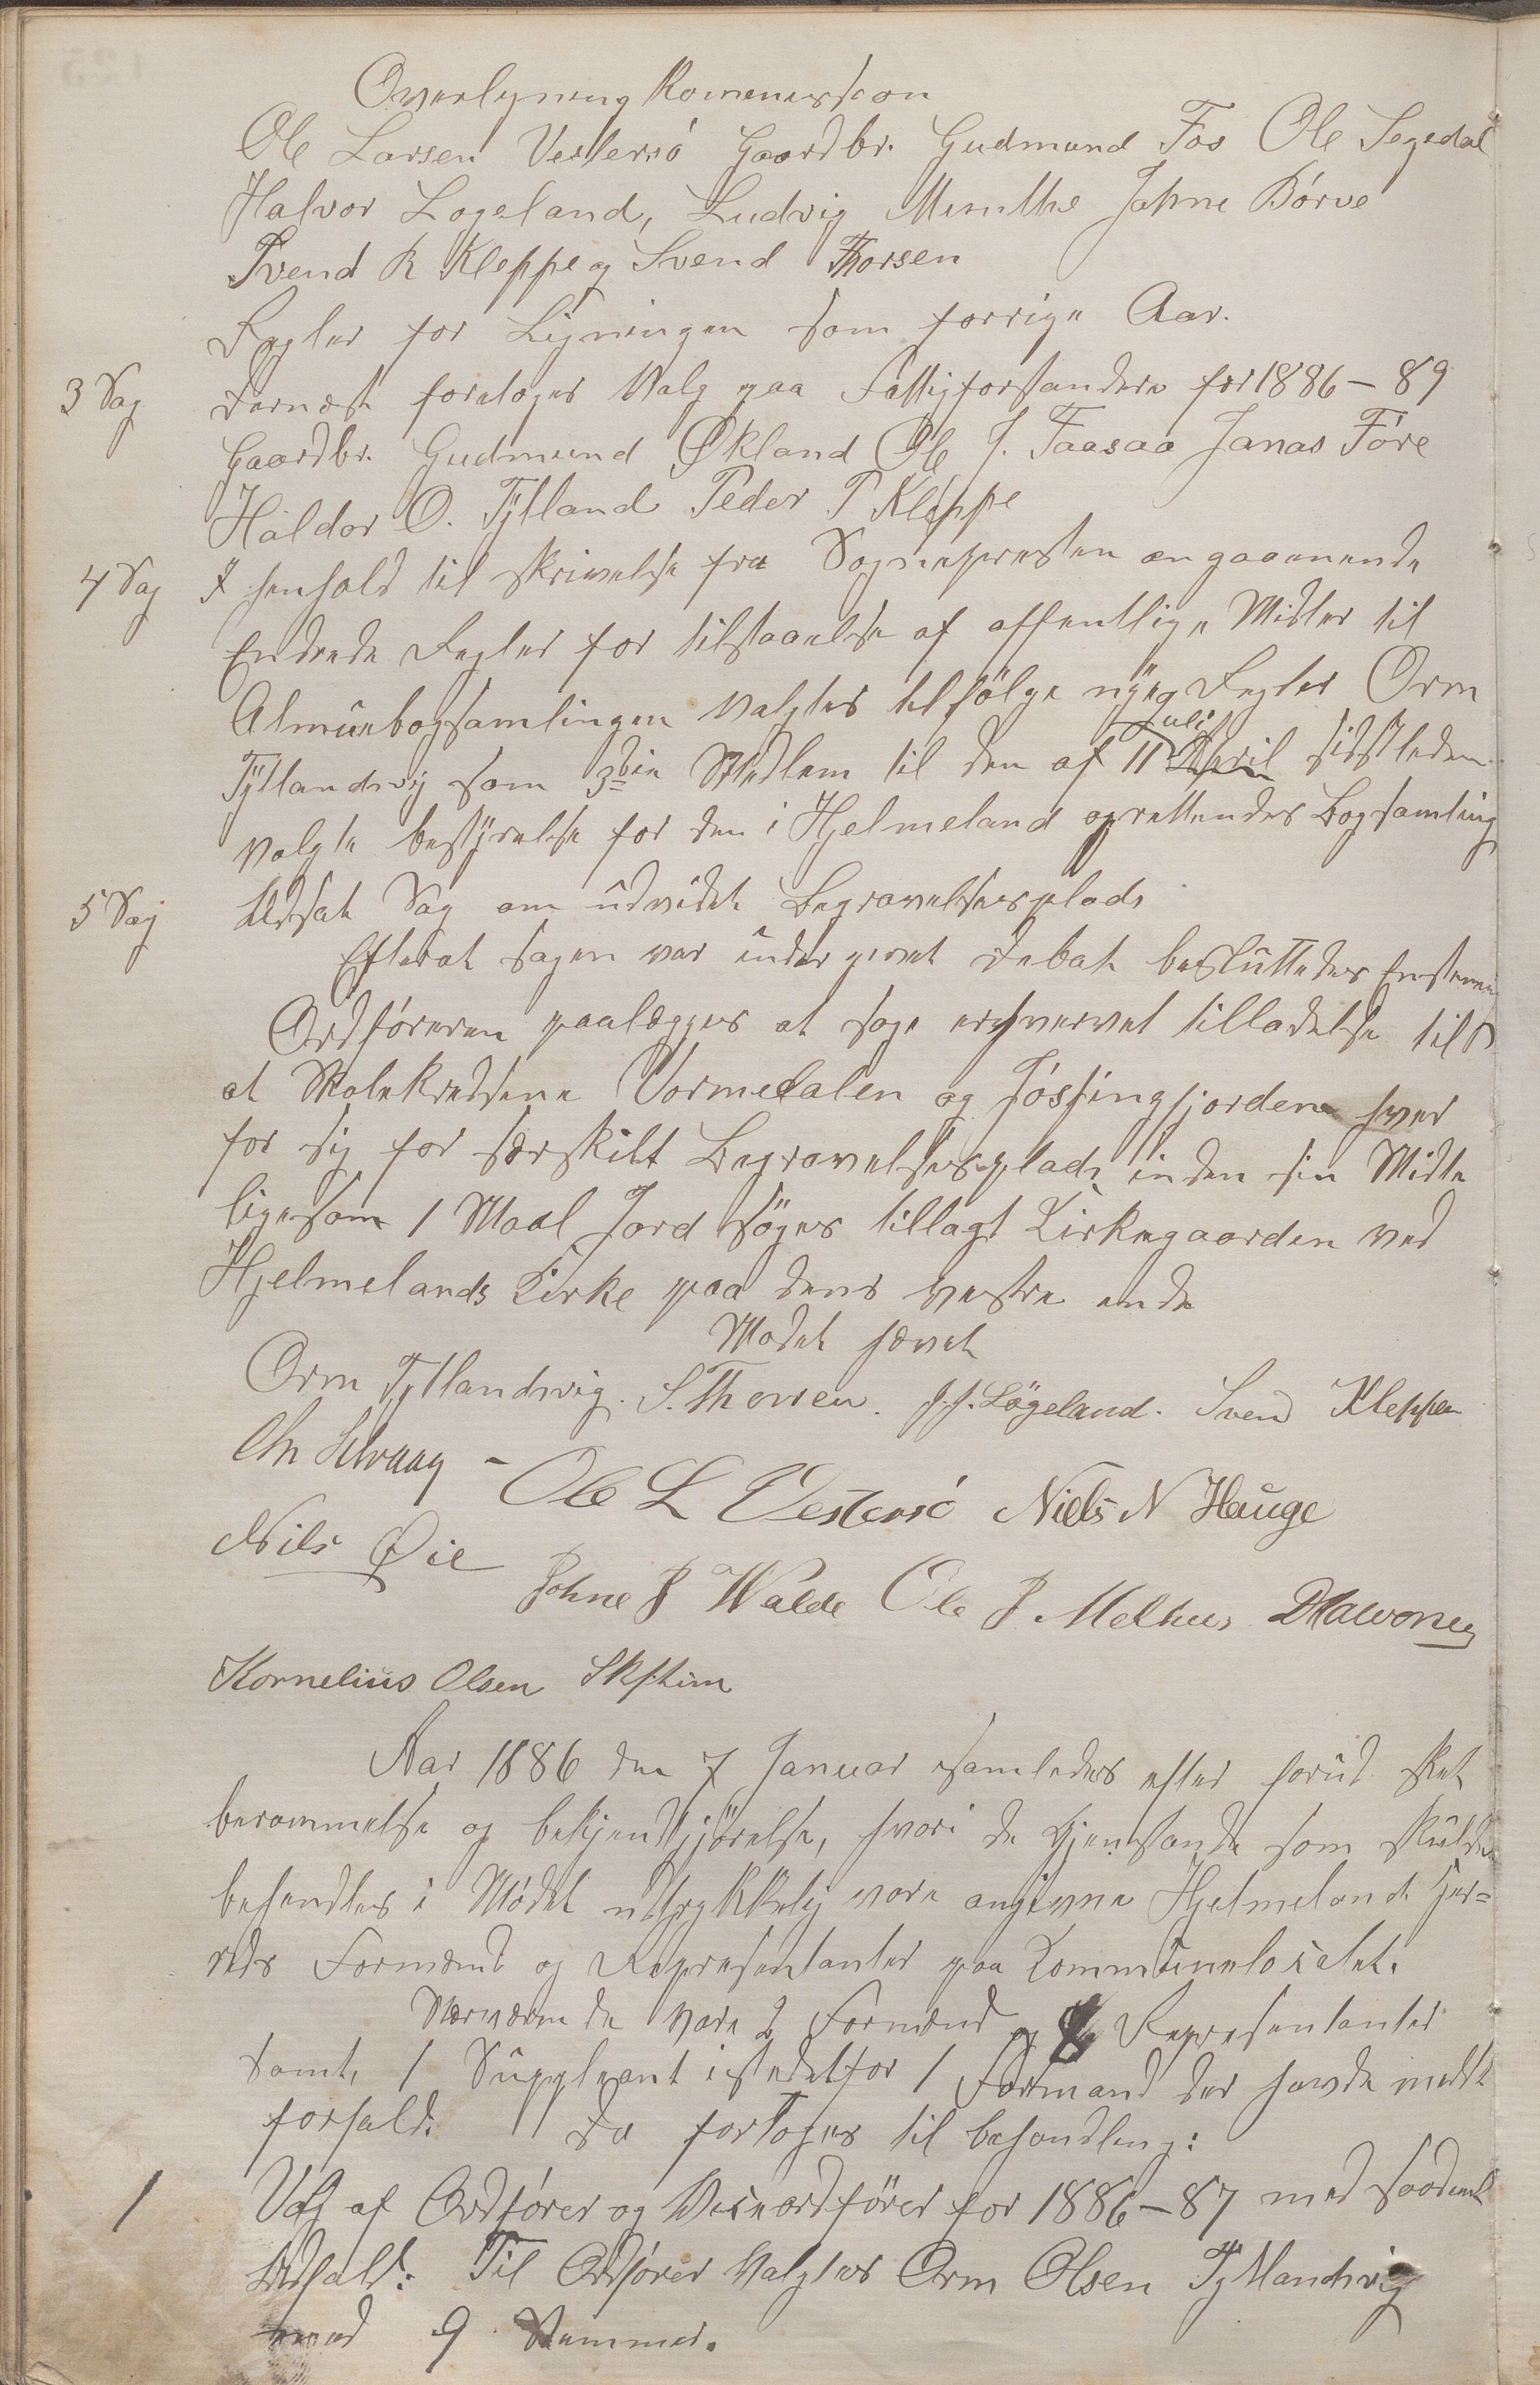 Overlyning Kommission
Ole Larsen Vestersö Gaardbr. Gudmund Fos Ole Segedal
Halvor Logeland, Ludvig Munthe Johne Börve
Svend R Kleppe og Svend Thorsen
Regler for Ligningen som forrige Aar.
3 Sag Dernæst foretoges Valg paa Fattigforstandere for 1886-89
Gaardbr. Gudmund Økland Ole J. Taasaa Janas Före
Haldor O. Tytland Peder P Kleppe
4 Sag I henhold til skrivelse fra Sognepresten angaaende
Endrede Regler for tilstaaelse af offentlige Midler til
Almuebogsamlingen valgtes tilfölge nye Regler Orm
Juli
Tytlandsvig som 3die Medlem til den af 11 April sidstleden
valgte bestyrelse for den i Hjelmeland oprettendes Bogsamling
5 Sag Udsat Sag om udvidet Begravelsesplads
Efterat sagen var under givet Debat besluttedes Enstem
Ordföreren paalægges at søge erhvervet tilladelse til
at Skolekredsene Vormedalen og Jössingfjorden hver
for sig for særskilt Begravelsesplads inden sin Midte
ligesom 1 Maal Jord söges tillagt Kirkegaarden ved
Hjelmelands Kirke paa dens vestre ende
Mødet hævet
Orm Tytlandsvig. S. Thorsen. J. J. Lögeland. Svend Kleppen
Ole L Vestersö Niels N Hauge
Nils Øie Johne J Walde Ole J Melhus
Kornelius Olsen
Aar 1886 den 7 Januar samledes efter forud sket
berammelse og bekjendtgjörelse, hvori de Gjenstande som skulde
behandles i Mödet udtrykkelig vare angivne Hjelmeland Her=
reds Formænd og Repræsentanter paa Kommunelokalet.
Nærværende vare 2 Formænd og 8 Repræsentanter
samt 1 Suppleant istedetfor 1 Formand der havde meldt
forfald. Da foretoges til behandling:
1 Valg af Ordförer og Viceordförer for 1886-87 med saadant
Udfald: Til Ordförer valgtes Orm Olsen Tytlandsvig
med 9 Stemmer.